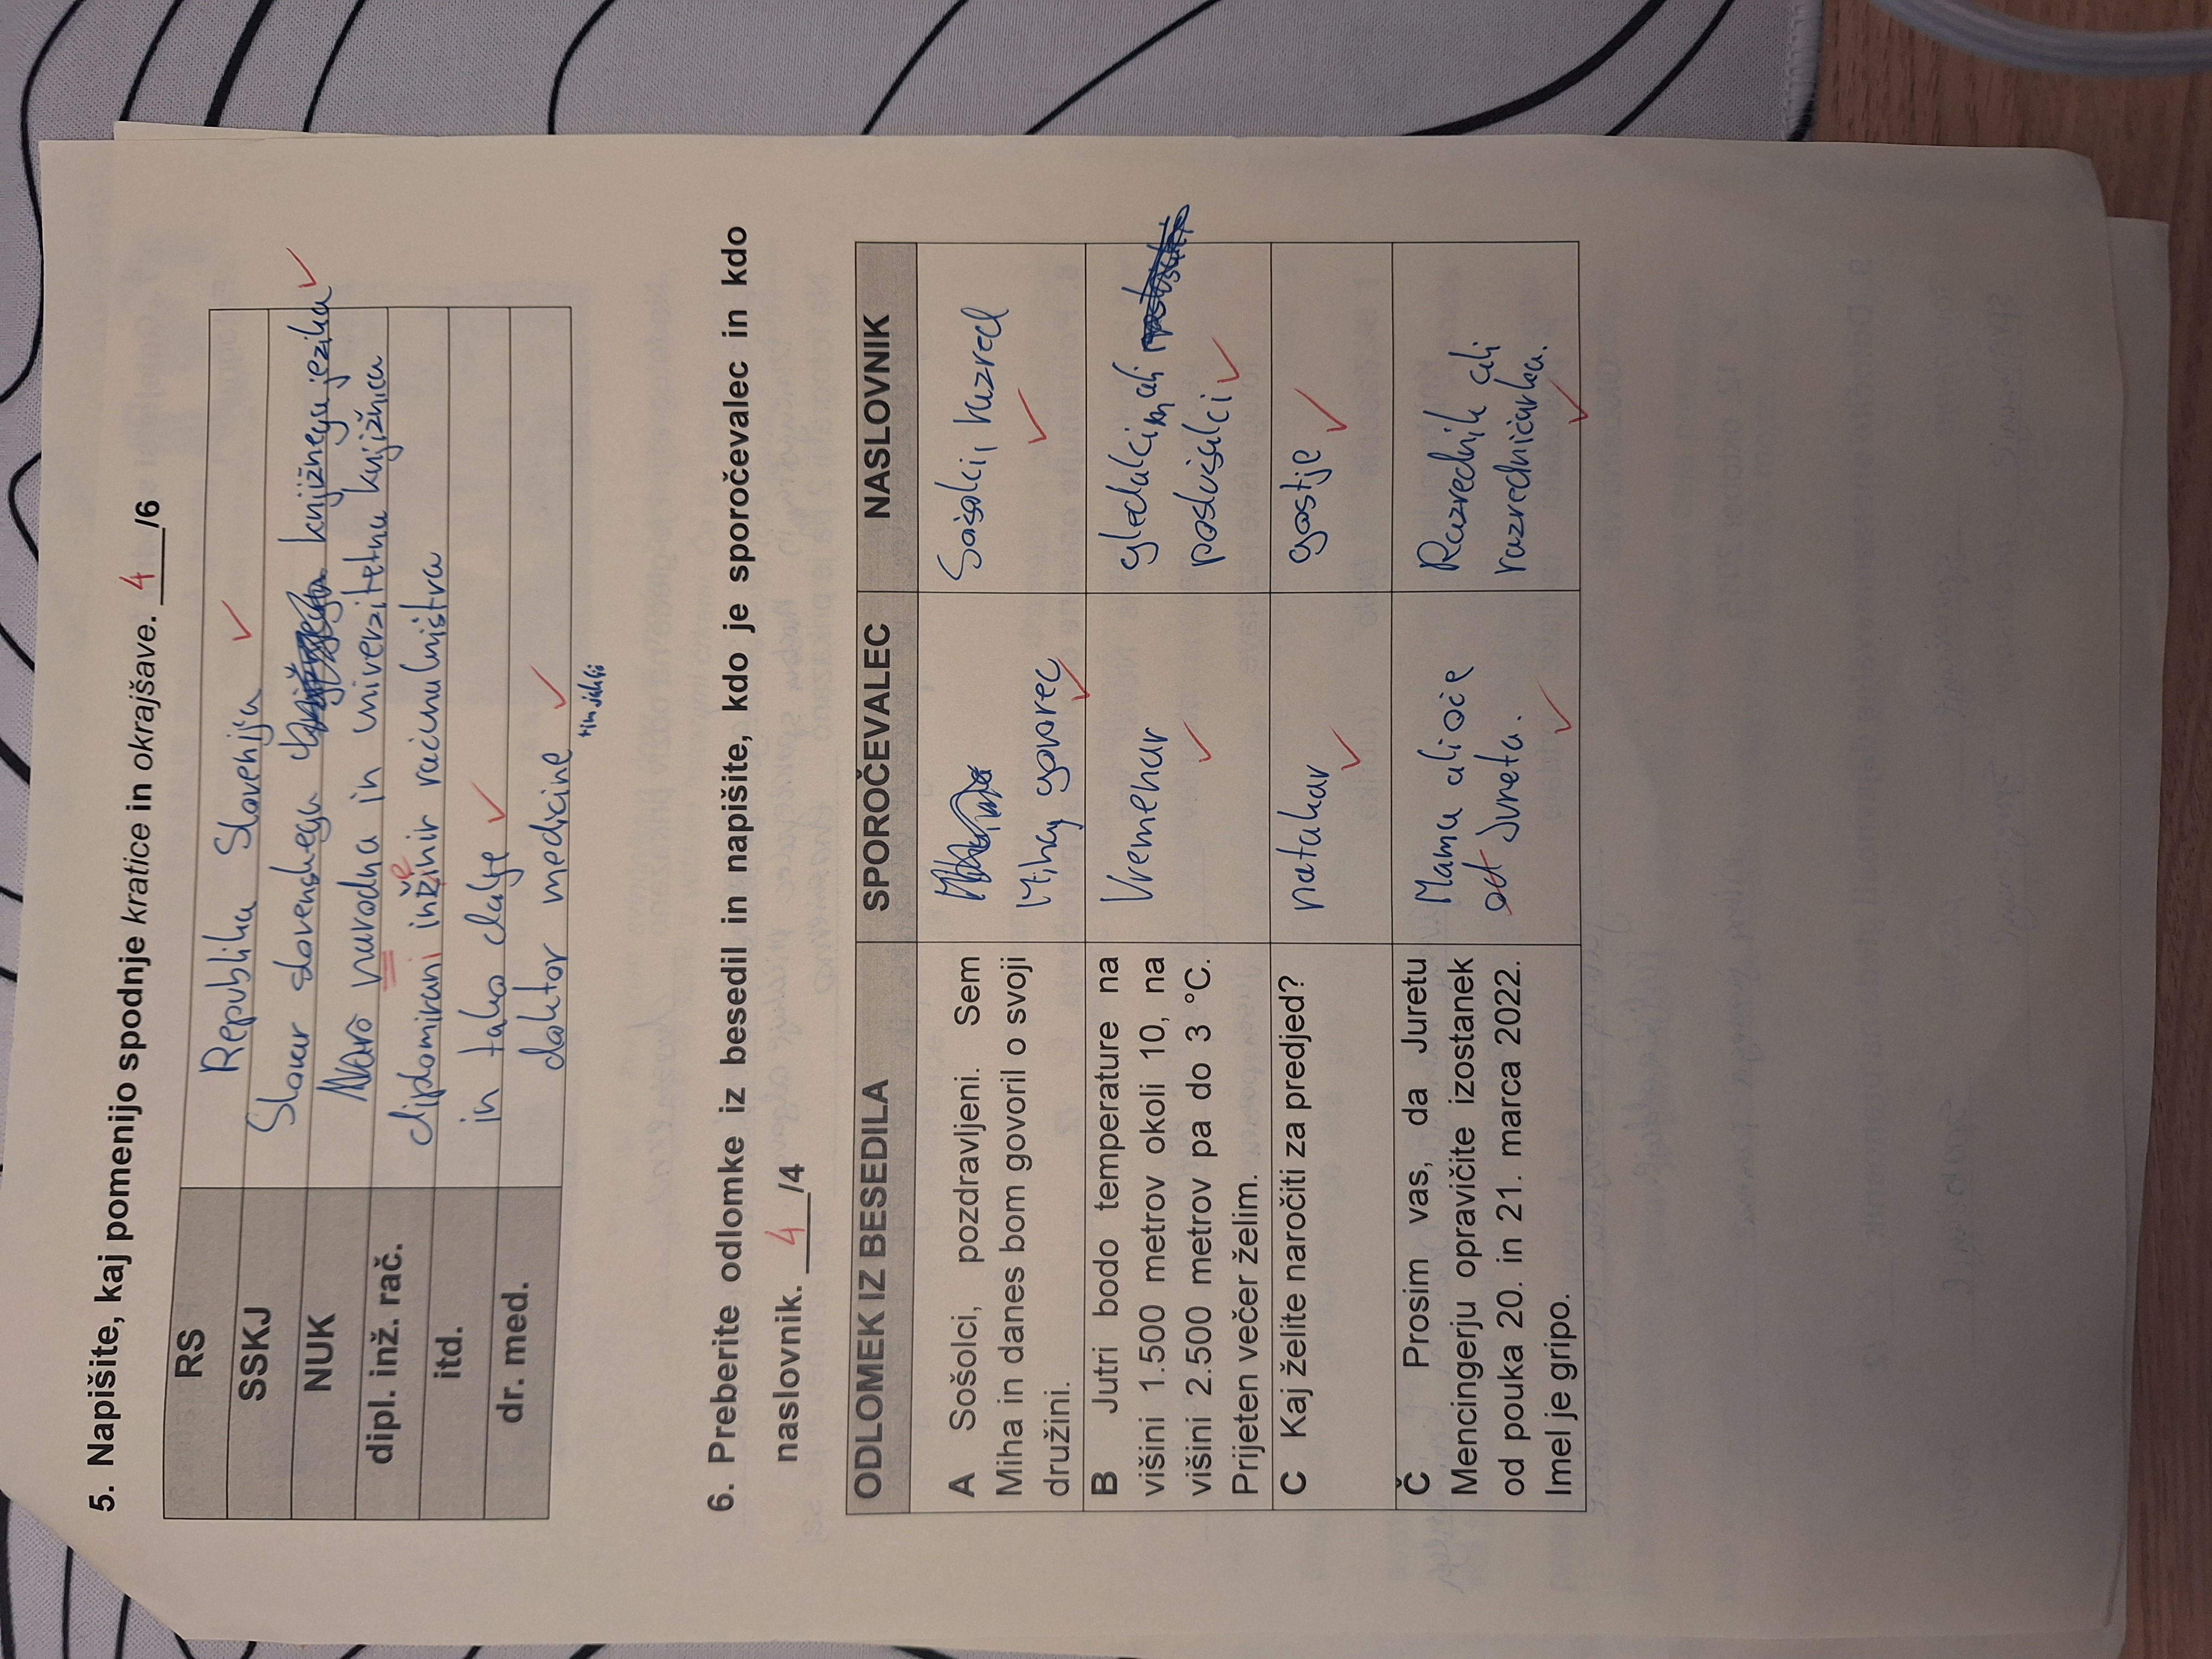 5. Napišite, kaj pomenijo spodnje kratice in okrajšave. 4/6
RS Republika Slovenija ✓
SSKJ Slovar slovenskega knjižnega jezika ✓
NUK narodna in univerzitetna knjižnica
dipl. inž. rač. diplomirani inžinir računalništva
e
itd. in tako dalje ✓
dr. med. doktor medicine ✓
6. Preberite odlomke iz besedil in napišite, kdo je sporočevalec in kdo
naslovnik. 4/4
ODLOMEK IZ BESEDILA SPOROČEVALEC NASLOVNIK
A Sošolci, pozdravljeni. Sem
Miha in danes bom govoril o svoji
družini.
Miha, govorec ✓
Sošolci, razred ✓
B Jutri bodo temperature na
višini 1.500 metrov okoli 10, na
višini 2.500 metrov pa do 3 °C.
Prijeten večer želim.
Vremenar ✓
gledalci ali
poslušalci ✓
C Kaj želite naročiti za predjed?
natakar ✓
gostje ✓
Č Prosim vas, da Juretu
Mencingerju opravičite izostanek
od pouka 20. in 21. marca 2022.
Imel je gripo.
Mama ali oče
od Jureta. ✓
Razrednik ali
razredničarka. ✓